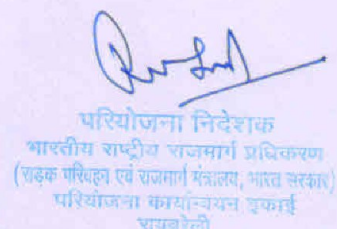 परियोजना निदेशक
भारतीय राष्ट्रीय राजमार्ग प्राधिकरण
(सड़क परिवहन एवं राजमार्ग मंत्रालय, भारत सरकार)
परियोजना कार्यान्वयन इकाई
रायबरेली